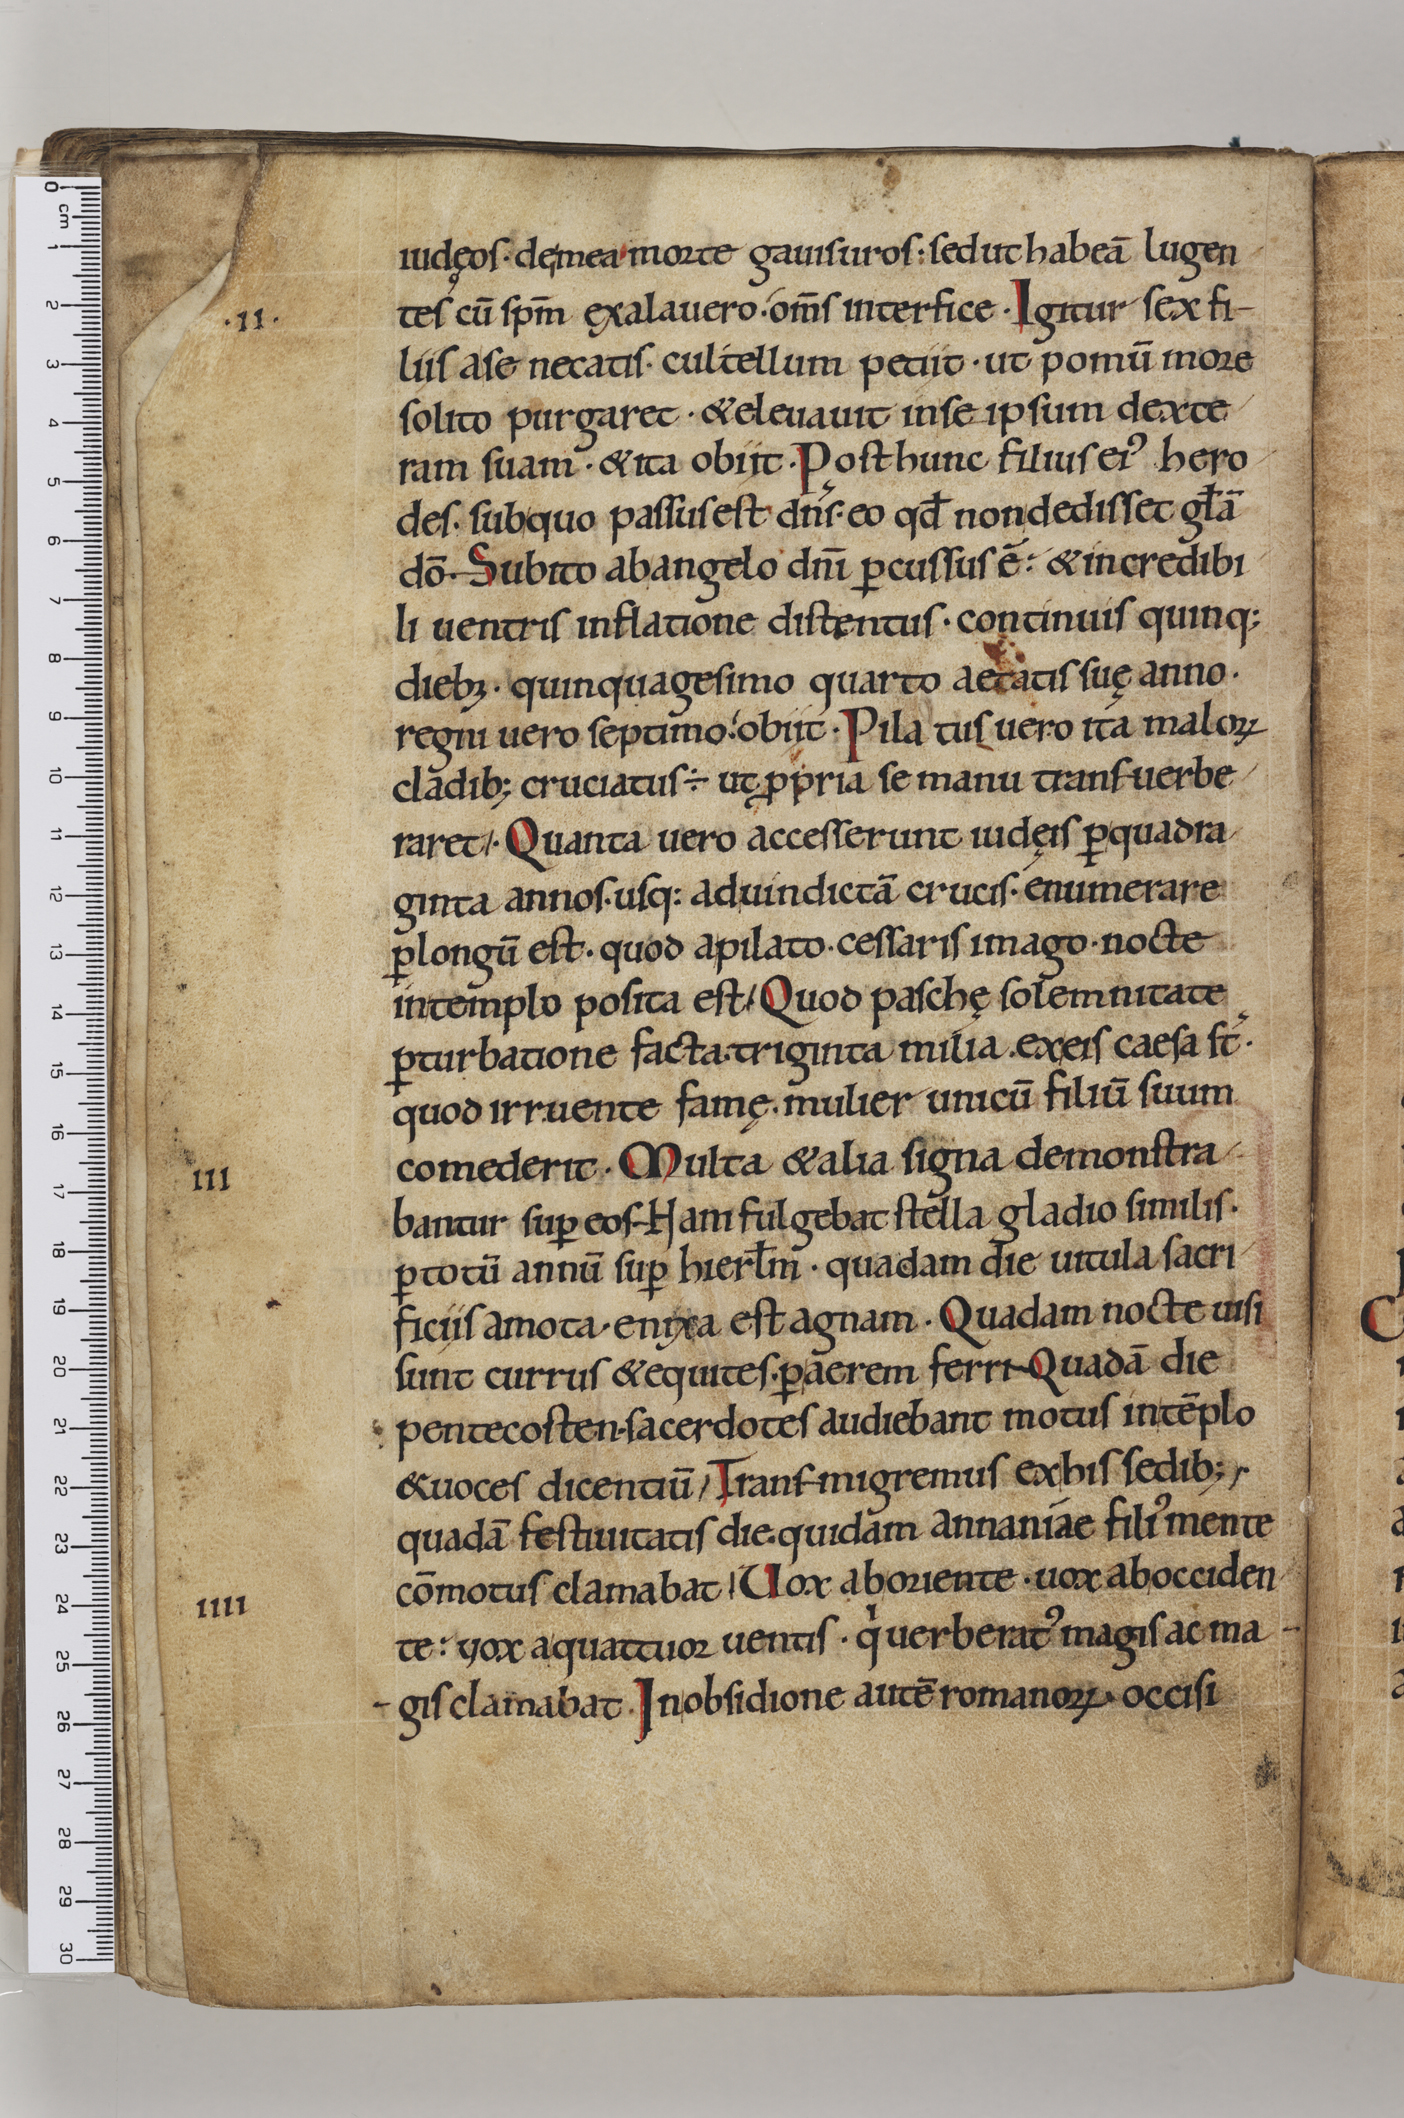 iudęos · de mea morte gauisuros : sed ut habeā lugen
tes cū spm̄ exalauero · om̄s interfice · Igitur sex fi-
·II·
liis a se necatis · cultellum petiit · ut pomū more
solito purgaret · & eleuauit in se ipsum dexte
ram suam · & ita obiit · Post hunc filius eiꝰ hero
des · sub quo passus est dn̄s · eo qđ non dedisset gl̄ā
dō · Subito ab angelo dn̄i ꝑcussus ē : & incredibi
li uentris inflatione distentus · continuis quinq;
diebꝫ · quinquagesimo quarto aetatis suę anno ·
regni uero septimo : obiit · Pilatus uero ita maloꝝ
cladib; cruciatus ÷ ut ꝓpria se manu transuerbe
raret · Quanta uero accesserunt iudęis ꝑ quadra
ginta annos · usq: ad uindictā crucis · enumerare
ꝑlongū est · quod a pilato · cessaris imago · nocte
in templo posita est / Quod paschę solemnitate
ꝑturbatione facta · triginta milia · ex eis caesa st̄ ·
quod irruente famę · mulier unicū filiū suum
comederit · Multa & alia signa demonstra
III
bantur suꝑ eos · Nam fulgebat stella gladio similis ·
ꝑ totū annū suꝑ hierl̄m · quadam die uitula sacri
ficiis amota · enixa est agnam · Quadam nocte uisi
sunt currus & equites · ꝑ aerem ferri · Quadā die
pentecosten · sacerdotes audiebant motus in tēplo
& uoces dicentiū / Transmigremus ex his sedib; /
quadā festiuitatis die · quidam annaniae filiꝰ mente
cōmotus clamabat / Uox ab oriente · uox ab occiden
IIII
te : uox a quattuor uentis · qͥ uerberatꝰ magis ac ma-
-gis clamabat · In obsidione autē romanoꝝ · occisi
0 cm 1 2 3 4 5 6 7 8 9 10 11 12 13 14 15 16 17 18 19 20 21 22 23 24 25 26 27 28 29 30